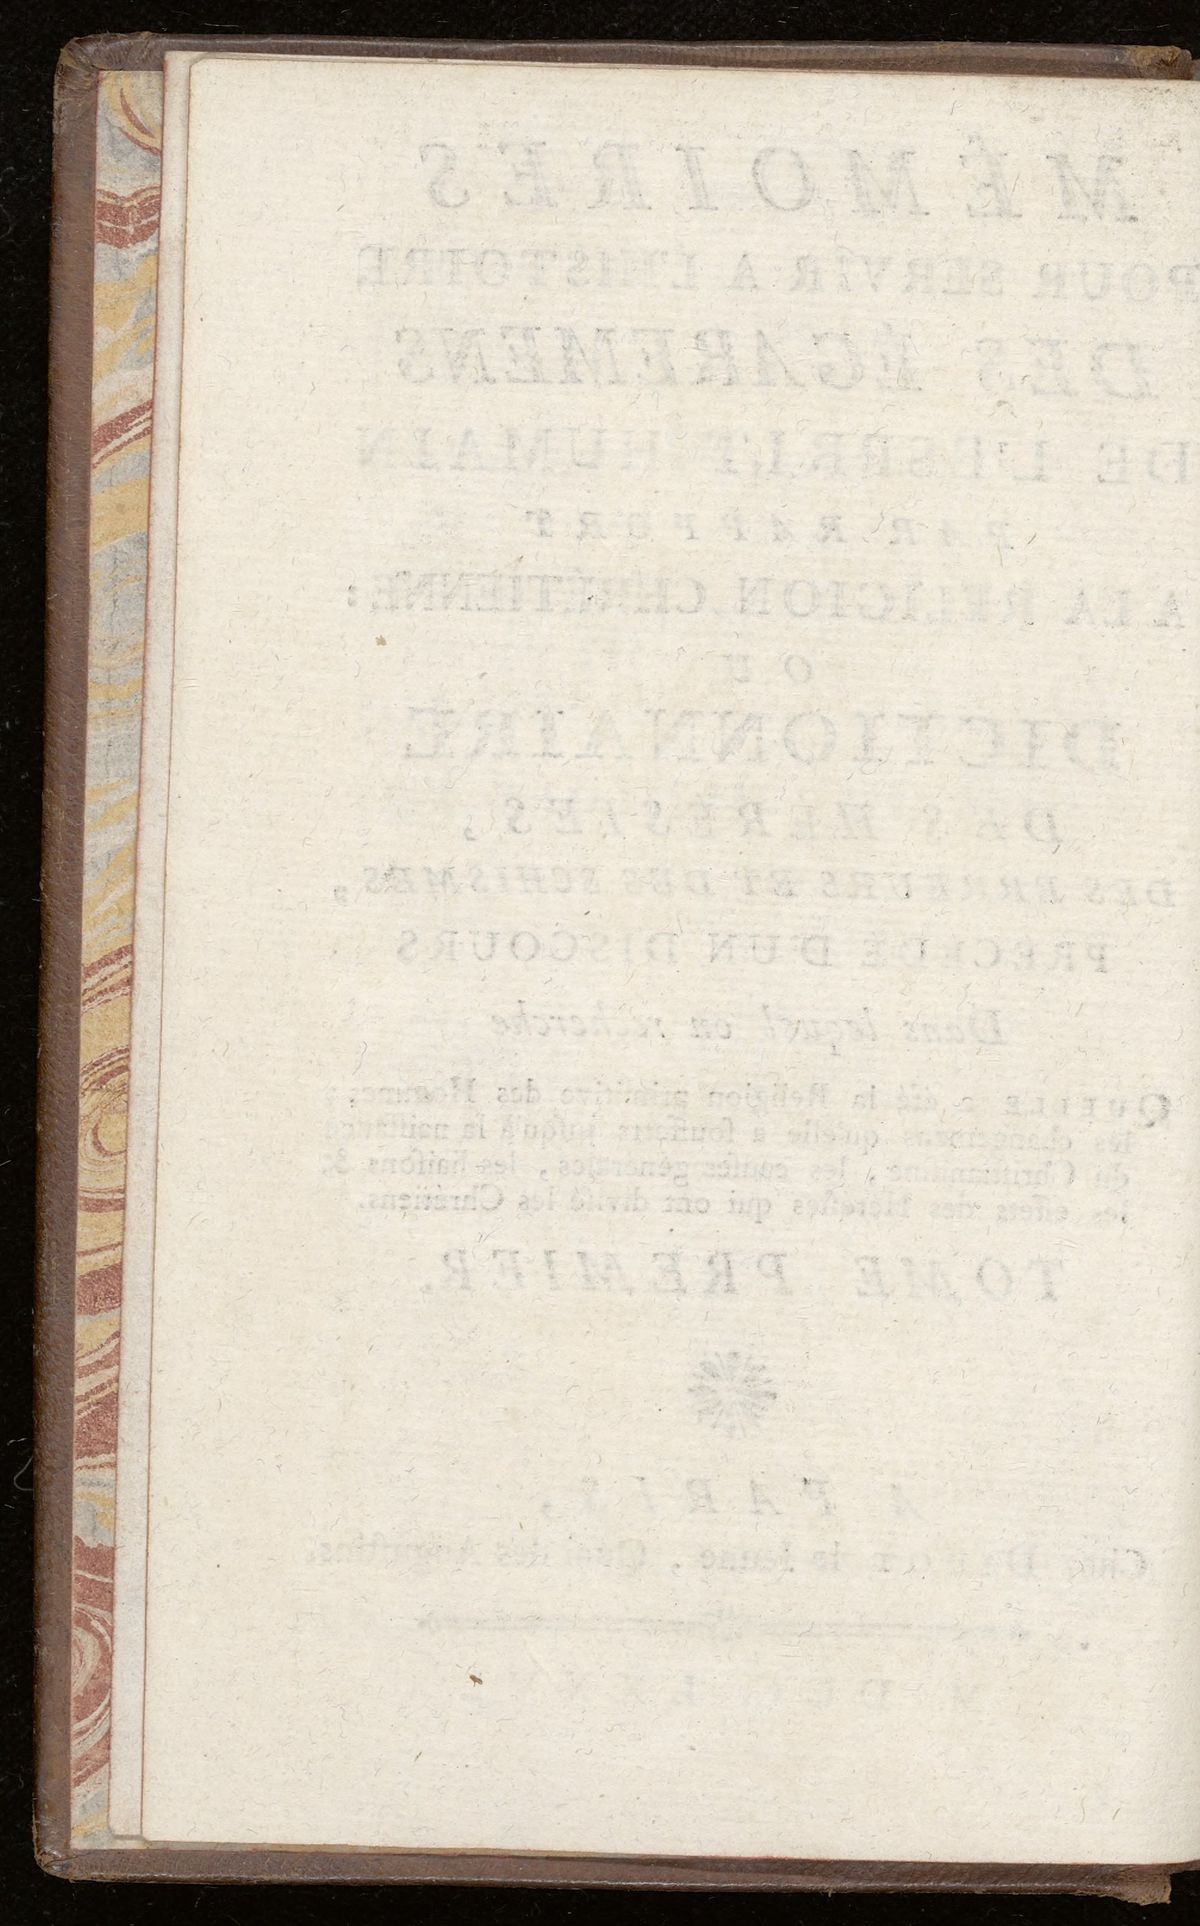 MÉMOIRES
POUR SERVIR A L'HISTOIRE
DES ÉGAREMENS
DE L'ESPRIT HUMAIN
PAR RAPPORT
A LA RELIGION CHRÉTIENNE:
OU
DICTIONNAIRE
DES HERESIES,
DES ERREURS ET DES SCHISMES,
PRECEDÉ D'UN DISCOURS
Dans lequel on recherche
QUELLE a été la Religion primitive des Hommes;
les changemens qu'elle a soufferts jusqu'à la naissance
du Christianisme, les causes générales, les liaisons &
les effets des Hérésies qui ont divisé les Chrétiens.
TOME PREMIER.
A PARIS,
Chez le Jeune, Quai des Augustins.